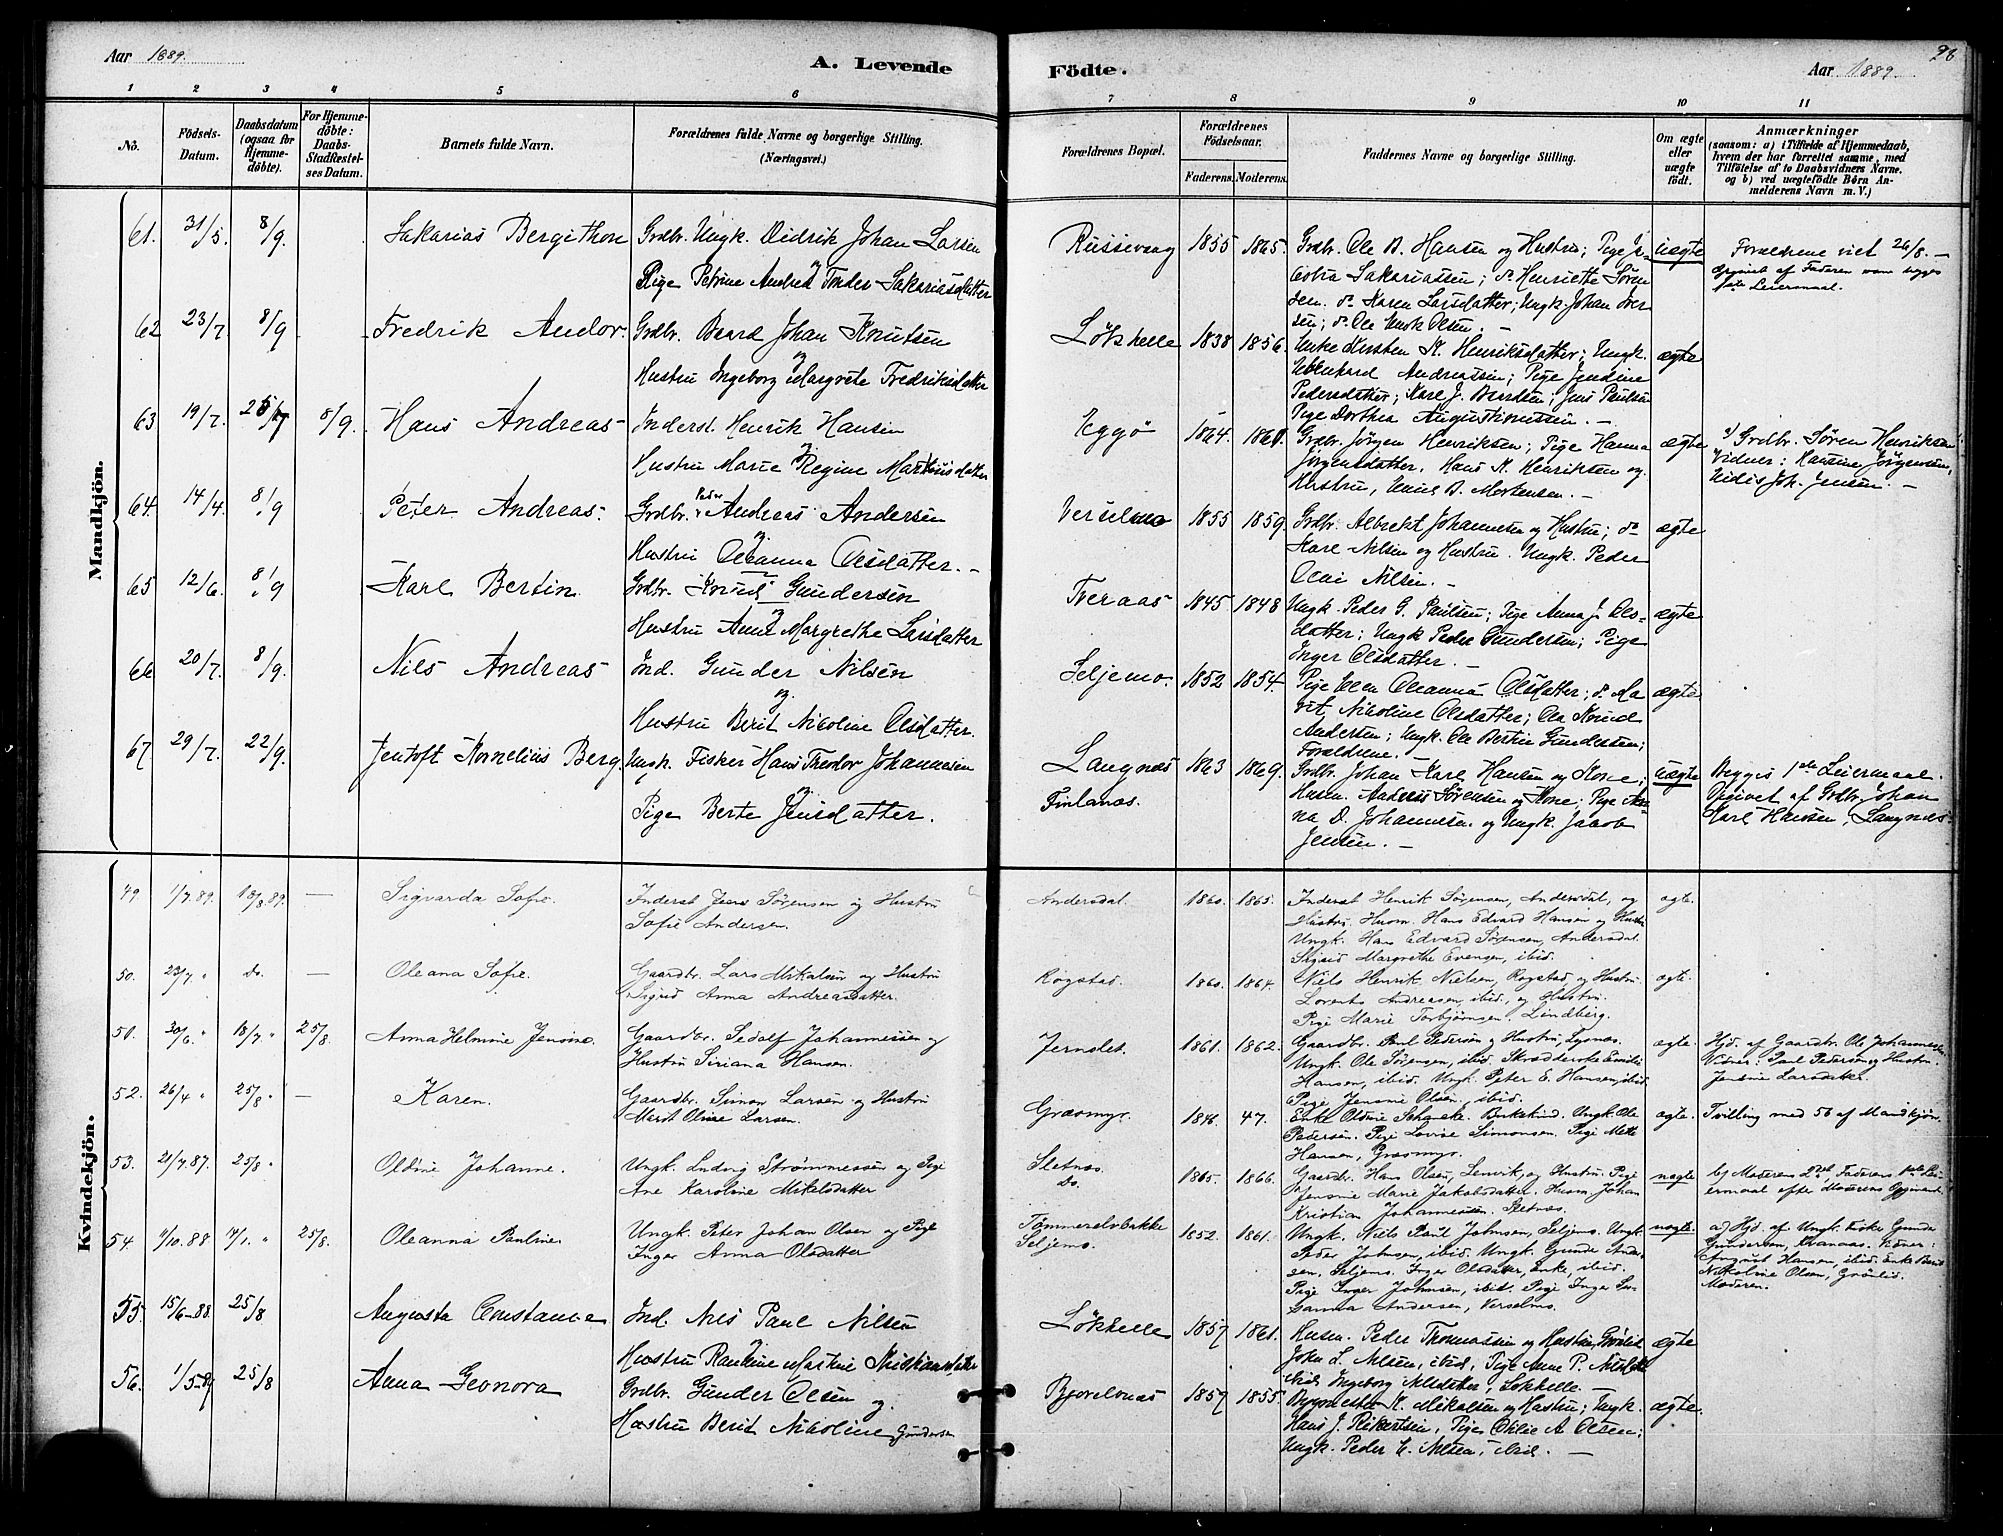 Aar 1889.
A. Levende
Födte.
Aar 1889.
98
1 2 3 4 5 6 7 8 9 10 11
No.
Födsels-Datum.
Daabsdatum (ogsaa for Hjemme-döbte).
For Hjemme-döbte: Daabs-Stadfæstel-ses Datum.
Barnets fulde Navn.
Forældrenes fulde Navne og borgerlige Stilling.
(Næringsvei.)
Forældrenes Bopæl.
Forældrenes Födselsaar.
Faderens. Moderens.
Faddernes Navne og borgerlige Stilling.
Om ægte eller uægte födt.
Anmærkninger
(saasom: a) i Tilfælde af Hjemmedaab, hvem der har forrettet samme, med Tilföielse af to Daabsvidners Navne, og b) ved uægtefödte Börn An-melderens Navn m. V.)
Mandkjön.
61. 31/5. 8/9. Sakarias Bergithon Grdbr. Ungk. Didrik Johan Larsen
Pige Petrine Andrea Sakariasdatter
Russevaag 1855 1865. Grdbr. Ole B. Hansen og Hustru; Pige Ja-
cobia Sakariassen; do Henriette Sören
sen. do Karen Larsdatter; Ungk. Johan Iver
sen; do Ole Olsen. —
uægte Forældrene viet 26/8. —
62 23/7. 8/9 Fredrik Andor. Grdbr. Baard Johan Knutsen
og
Hustru Ingeborg Margrete Fredriksdatter
Løkhelle 1838 1856. Enke Kirsten K. Henriksdatter; Ungk.
Andreassen; Pige Jendine
Pedersdatter; Karl J. Berntsen; Jens Paulsen
Pige Dorthea Augustinussen. —
ægte
63 19/7. 8/9. Hans Andreas Inderst. Henrik Hansen
og
Hustru Marie Regine
Eggö 1864. Grdbr. Jørgen Henriksen; Pige Hanna
Jørgensdatter. Hans K. Henriksen og
Hustru, B. Mortensen. —
ægte a) Grdbr. Søren Henriksen
Vidner: Hansine Jørgensen,
Joh. Jensen. —
64. 14/4. 8/9 Peter Andreas. Grdbr. Peder Andreas Andersen
og
Hustru Oleanna Olsdatter. —
Verselmo 1855 1859. Grdbr. Albrekt Johannesen og Hustru; do
Karl Nilsen og Hustru. Ungk. Peder
Olai Nilsen. —
ægte
65 12/6. 8/9 Karl Bertin. Grdbr. Knud Gundersen
og
Hustru Anne Margrethe Larsdatter
Tveraas 1845 1848 Ungk. Peder G. Paulsen; Pige Anna J. Ols-
datter; Ungk Peder Gundersen; Pige
Inger Olsdatter. —
ægte
66 20/7. 8/9. Nils Andreas Ind. Gunder Nilsen
og
Hustru Berit Nicoline Olsdatter.
Seljemo. 1852 1854. Pige Ellen Oleanna Olsdatter; do Ma
rit Nikoline Olsdatter; Ole Knud
Andersen; Ungk. Ole Bertin Gundersen;
Forældrene. —
ægte
67 29/7. 22/9. Jentoft Kornelius Berg. Ungk. Fisker Hans Theodor Johannesen
og
Pige Berte Jensdatter.
Langnæs
Finlanæs.
1863 1869. Grdbr. Johan Karl Hansen og Kone;
Husm. Anders Sørensen og Kone; Pige An-
na D. Johannesen. og Ungk. Jacob
Jensen. —
uægte Begges 1ste Leiermaal.
Opgivet af Grdbr. Johan
Karl Hansen, Langnæs.
Kvindekjön.
49. 1/7.89. 18/8.89. — Sigvarda Sofie. Inderst Jens Sørensen og Hustru
Sofie Andersen.
Andersdal. 1860. 1865. Inderst Henrik Sørensen, Andersdal, og
Hustru, Husm. Hans Edvard Hansen og Hustru
Ungk. Hans Edvard Sørensen, Andersdal.
Sigrid Margrethe Evensen, ibid.
ægte.
50. 23/7 " Do. — Oleana Sofie. Gaardbr. Lars Mikalsen og Hustru
Sigrid Anna Andreasdatter.
Rogstad. 1860. 1864. Niels Henrik Nielsen, Rogstad, og Hustru.
Lorents Andreasen, ibid, og Hustru.
Pige Marie Torbjørnsen, Lindberg.
ægte.
51. 30/6 " 18/7 " 25/8. Anna Helmine Jensine. Gaardbr. Sedolf Johannessen og
Hustru Siriana Hansen.
Jernslet. 1861. 1862. Gaardbr. Paul Pedersen og Hustru, Lysnæs.
Ungk. Ole Sørensen, ibid. Skrædderske Emilie
Hansen, ibid. Ungk. Peter E. Hansen, ibid
Pige Jensine Olsen, ibid.
ægte. Hjd. af Gaardbr. Ole Johannesen
Vidner: Paul Pedersen og Hustru
Jensine Larsdatter.
52. 26/4 " 25/8 " — Karen. Gaardbr. Simon Larsen og Hustru
Marit Oline Larsen.
Græsmyr. 1846. 47. Enke Oldine Schancke, Birkestrand. Ungk. Ole
Pedersen. Pige Lovise Simonsen. Pige Mette
Hansen, Græsmyr.
ægte. Tvilling med 56 af Mandkjøn.
53. 21/7.87. 25/8 " Oldine Johanne. Ungk. Ludvig Strømmessen og Pige
Ane Karoline Mikelsdatter
Sletnæs.
Do.
1865. 1866. Gaardbr. Hans Olsen, Lenvik, og Hustru. Pige
Jensine Marie Jakobsdatter. Husm. Johan
Kristian Johannessen, Sletnæs.
uægte b) Moderens 2det, Faderens 1ste Lei-
ermaal efter Moderens Opgivende.
54. 11/10.88 14/1. " 25/8. Oleanna Pauline. Ungk. Peter Johan Olsen og Pige
Inger Anna Olsdatter
Tømmerelvbakke
Seljemo.
1852. 1861. Ungk. Niels Paul Johnsen, Seljemo. Ungk.
Peder Johnsen, ibid. Ungk. Gunder Ander-
sen, Seljemo. Inger Olsdatter, Enke, ibid.
Pige Inger Johnsen, ibid. Pige Inger Su-
sanna Andersen, Verselmo.
uægte. a) Hjd. af Ungk. Fisker Gunder
Gundersen, Kvanaas. Vidner:
August Hansen, ibid. Enke Berit
Nikoline Olsen, Grønlid.
Moderen.
55. 15/6-88. 25/8 Augusta Constance Ind. Nils Paul Nilsen
og
Hustru Pauline Martine Kristiansdatter
Løkhelle 1857 1861. Husm. Peder Thomassen og Hustru, Grønlid
John L. Nilsen, ibid, Pige Anne P.
ibid Ingeborg Nilsdatter, Løkhelle. —
ægte
56. 1/5-89 25/8 Anna Leonora Grdbr. Gunder Olsen og
Hustru Berit Nikoline Gundersen
Bjorelvnæs 1857 1855. K. Mikalsen og Hustru; Ungk.
Hans J. Rikertsen, Pige Othilie A. Olsen;
Ungk. Peder E. Nilsen, ibid. —
ægte.